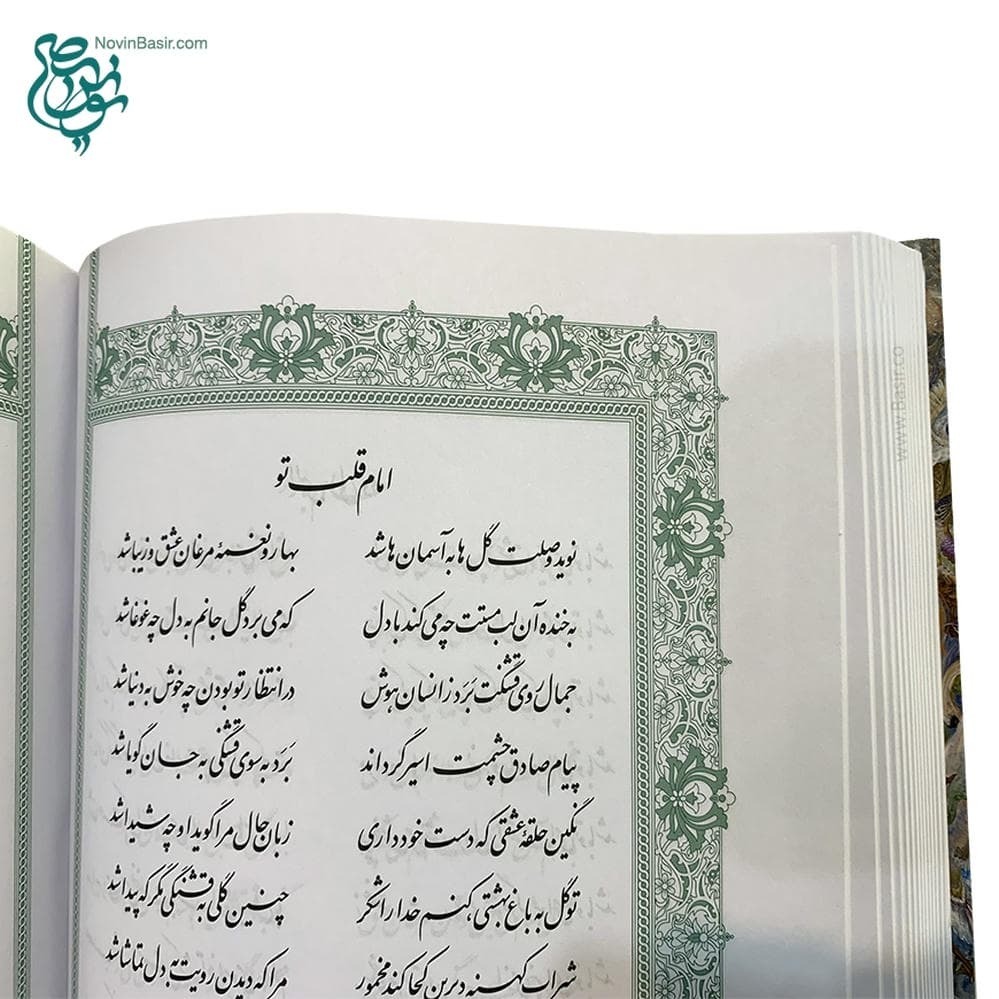 NovinBasir.com
www.Basir.co
امام قلب تو
نوید وصلت گل ها به آسمان ها شد بهار و نغمهٔ مرغان عشق و زیبا شد
به خنده آن لب مستت چه می کند با دل که می برد گل جانم به دل چه غوغا شد
جمال رَوی قشنگت بَرَد ز انسان هوش در انتظار تو بودن چه خوش به دنیا شد
پیام صادق چشمت اسیر گرداند بَرَد به سوی قشنگی به جان گویا شد
نگین حلقهٔ عشقی که دست خود داری زبان حال مرا گوید او چه شیدا شد
تو گل به باغ بهشتی کنم خدا را شکر چنین گلی به قشنگی مگر که پیدا شد
شراب کهنه دیرین کجا کند مخمور مرا که دیدن رویت به دل تماشا شد